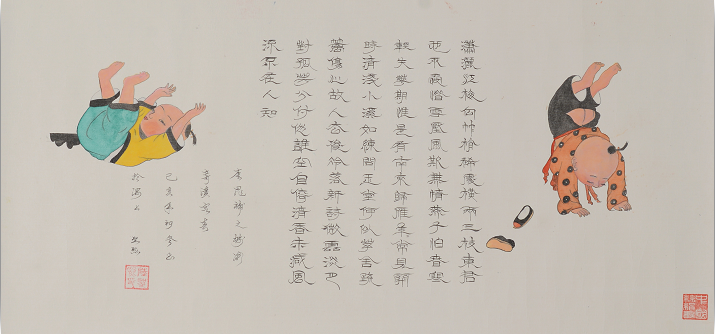 瀟灑江梅向竹梢稀處橫兩三枝東君
也不愛惜雪壓風欺無情燕子怕春寒
輕失花期惟是有南來歸雁年見開
時清淺小溪如練問玉堂何似茅舍疏
籬傷心故人去後冷落新詩微雲淡月
對孤芳分付他誰空自倚清香未減風
流不在人知
漢宮春
己亥春初
於滬上